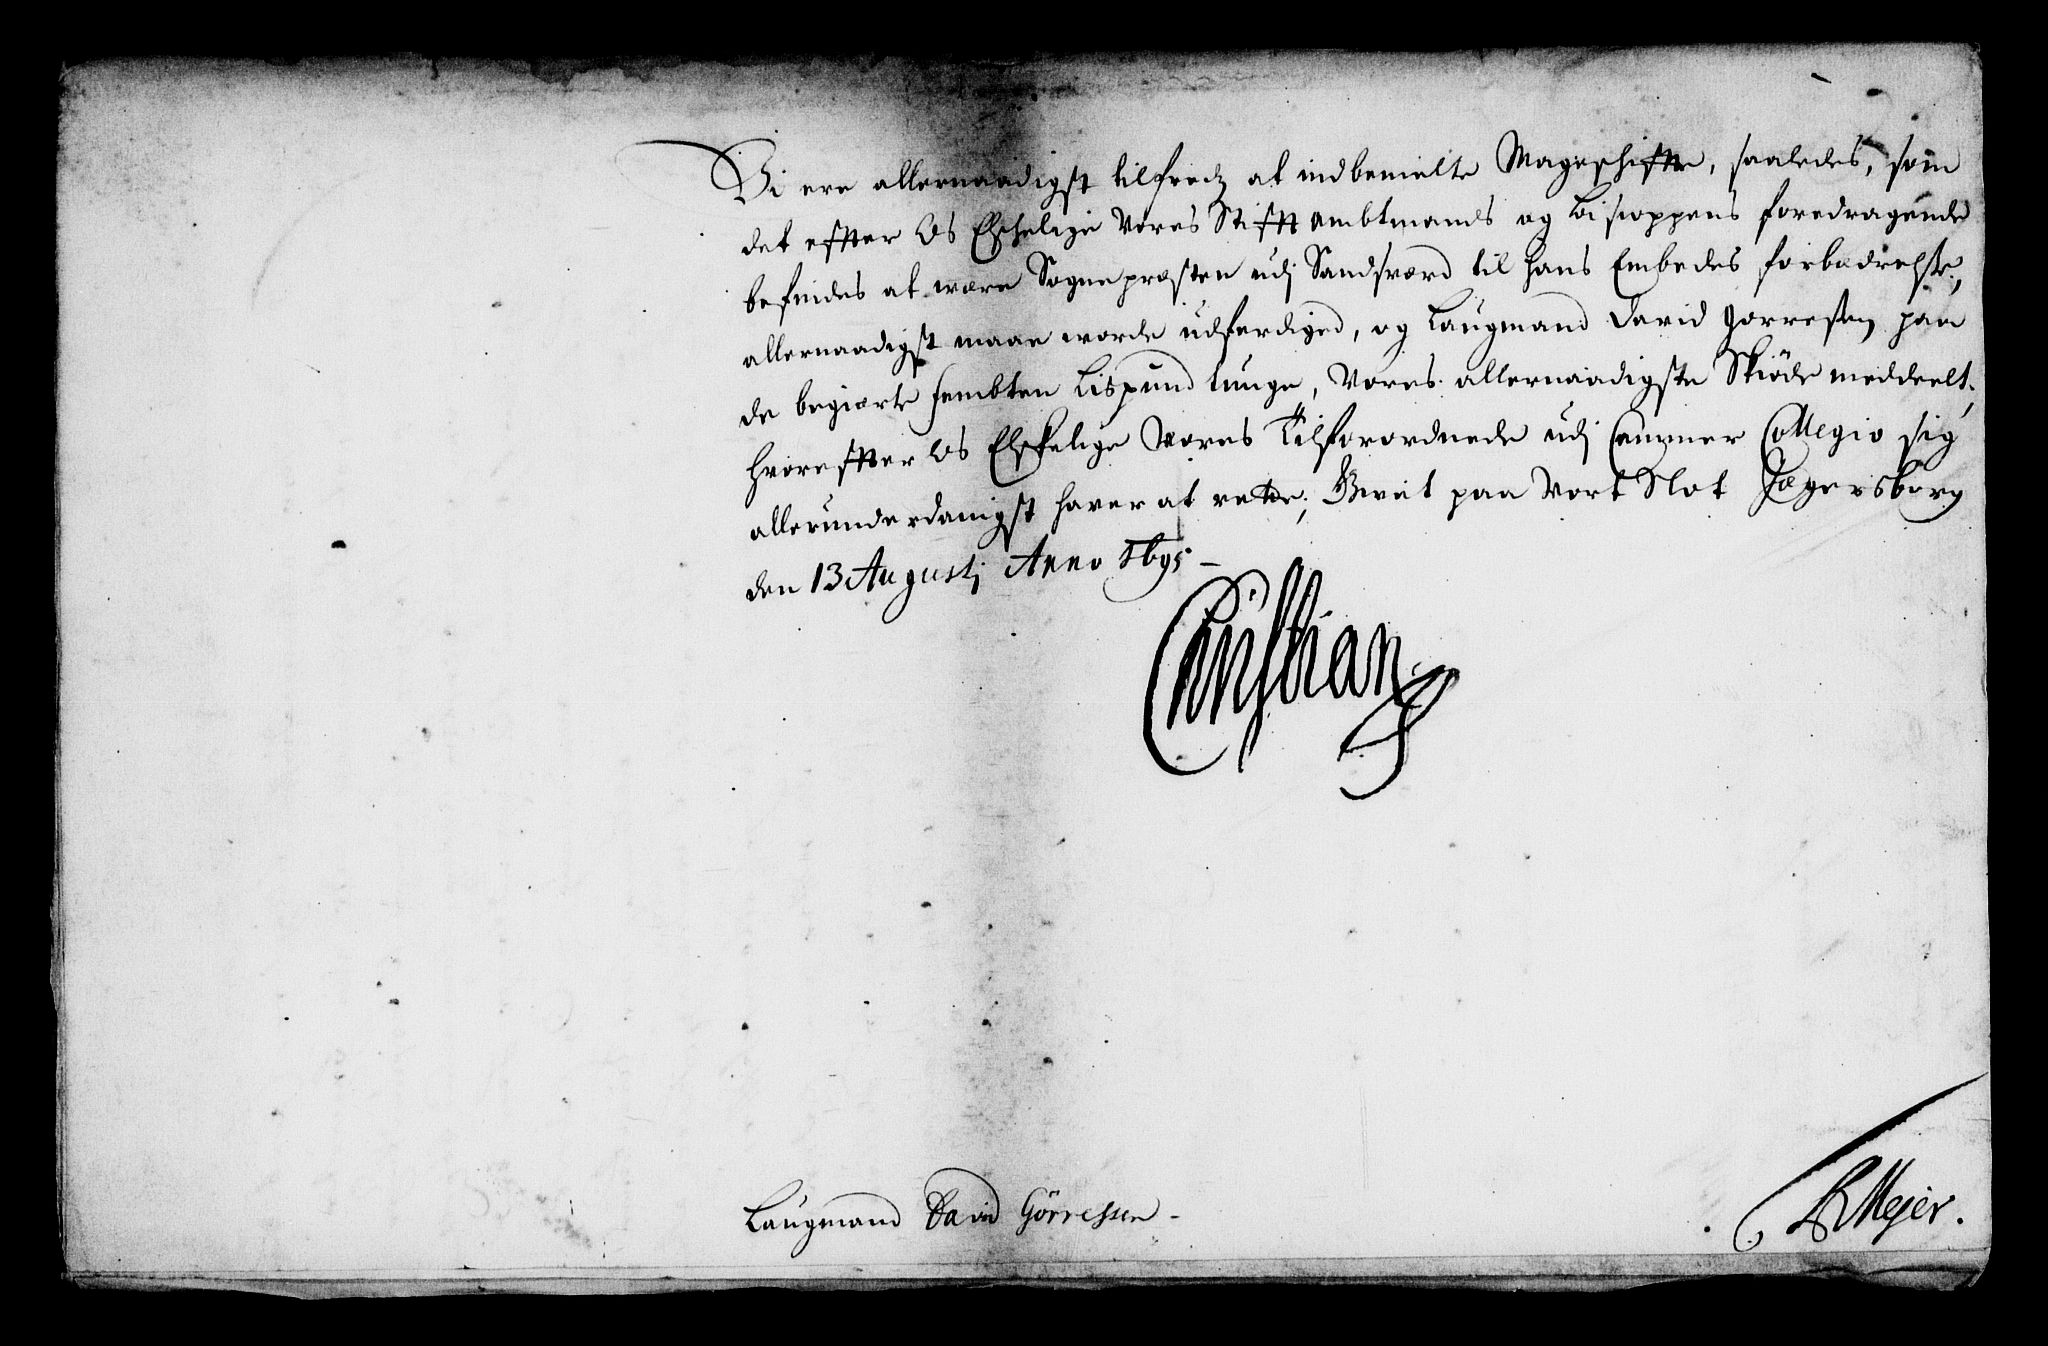 Vi ere allernaadigst tilfredz at indbemelte Mageschiffte, saaledes, som
det effter Os Elschelige Vores Stifft ambtmands og Bisoppens foredragende
befindes at være Sognepræsten udj Sandsværd til hans Embedes forbædrelse,
allernaadigst maae vorde udferdiged, og Laugmand David Gørresen paa
de begierte fembten Lispund tunge, Vores allernaadigste Skiöde meddeelt,
hvoreffter Os Elskelige Vores Tilforordnede udj Cammer Collegio sig
allerunderdanigst haver at rette; Skrevet paa Vort Slot Jægersborg
den 13 Augustj Anno 1695 –
Christian
Laugmand David Görressen –
Mejer.